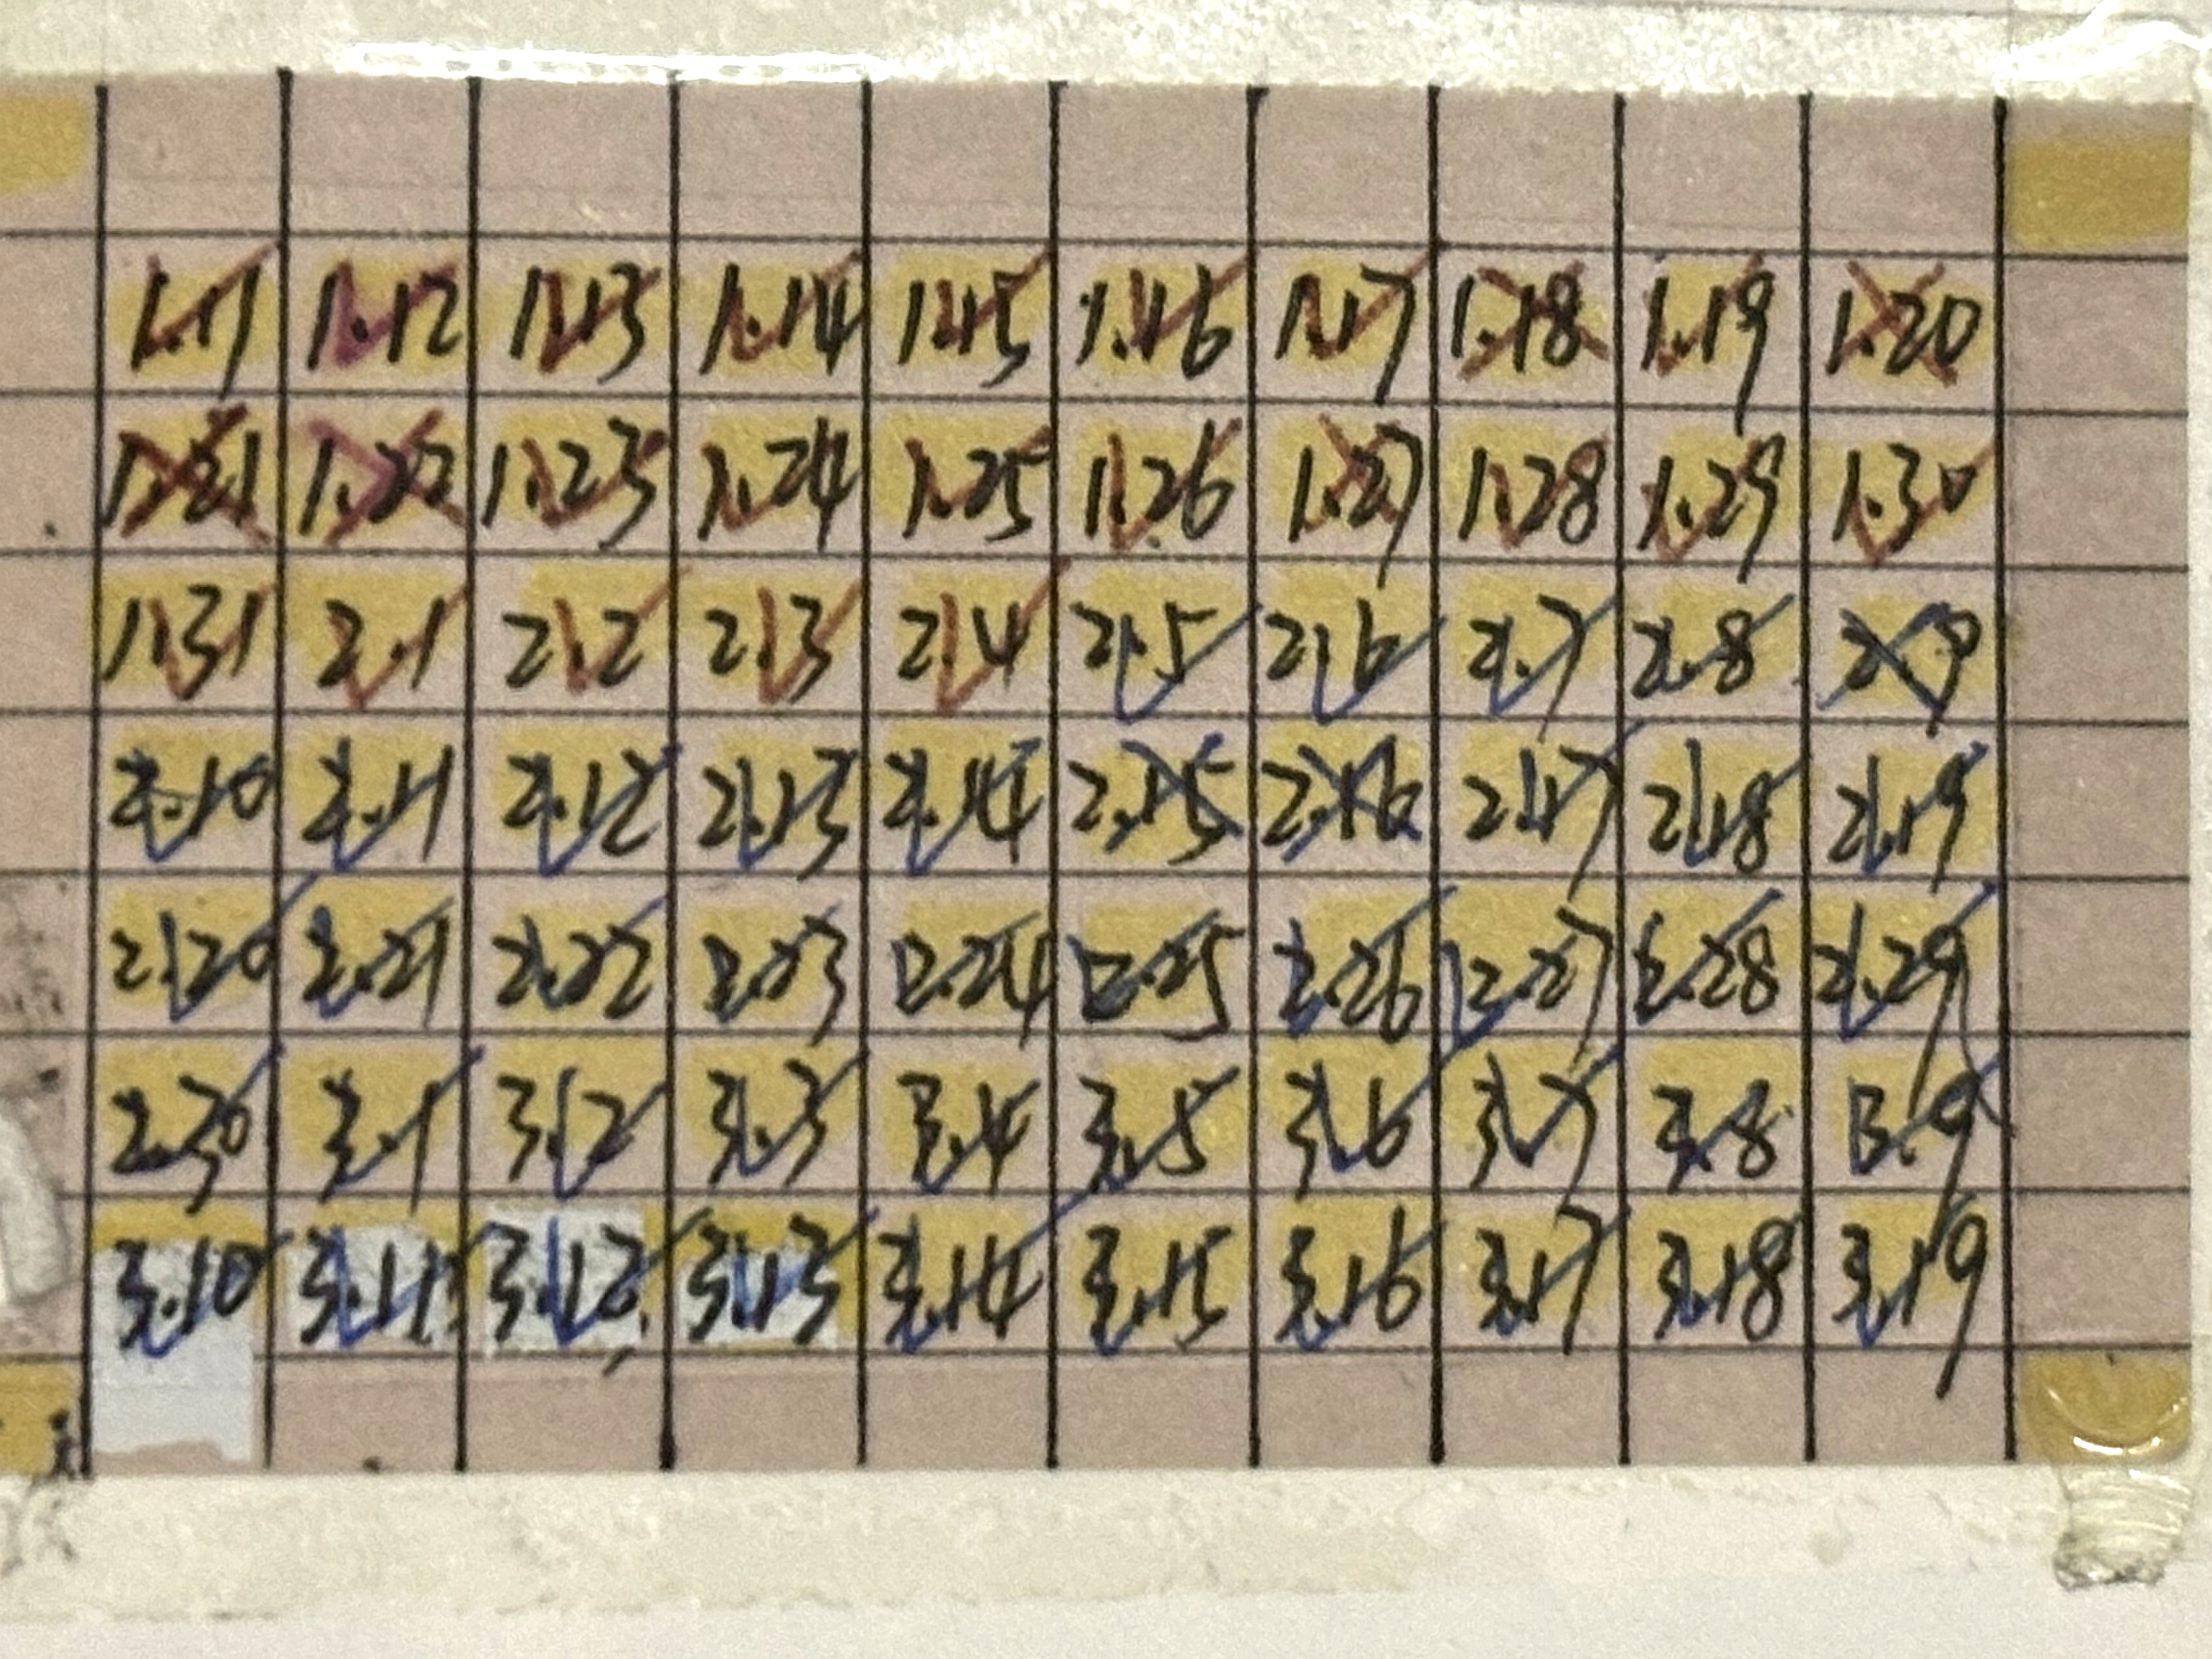 1.11 1.12 1.13 1.14 1.15 1.16 1.17 1.18 1.19 1.20
1.21 1.22 1.23 1.24 1.25 1.26 1.27 1.28 1.29 1.30
1.31 2.1 2.2 2.3 2.4 2.5 2.6 2.7 2.8 2.9
2.10 2.11 2.12 2.13 2.14 2.15 2.16 2.17 2.18 2.19
2.20 2.21 2.22 2.23 2.24 2.25 2.26 2.27 2.28 2.29
2.30 3.1 3.2 3.3 3.4 3.5 3.6 3.7 3.8 3.9
3.10 3.11 3.12 3.13 3.14 3.15 3.16 3.17 3.18 3.19